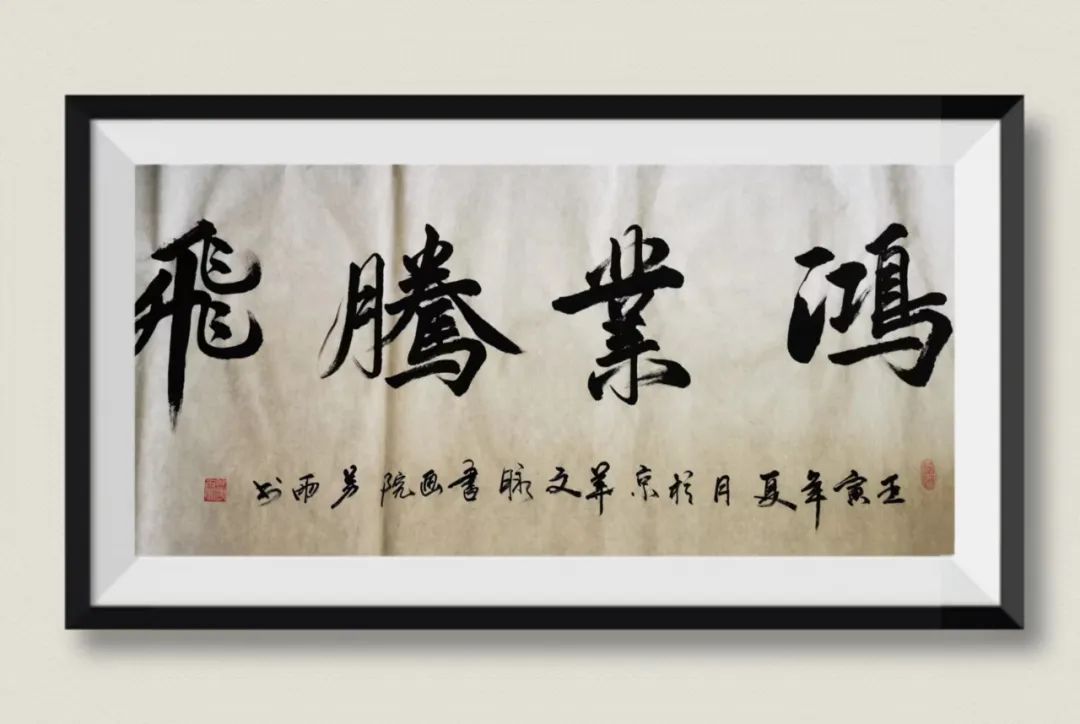 鴻業騰飛
壬寅年夏月於京華文脉書画院雨书